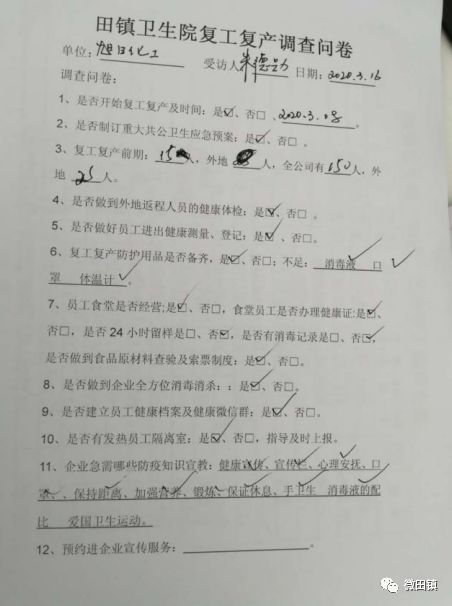 田镇卫生院复工复产调查问卷
单位：旭日化工 受访人 朱德 日期：2020.3.16
调查问卷：
1、是否开始复工复产及时间：是☑、否□、2020.3.
2、是否制订重大共公卫生应急预案：是☑、否□。
3、复工复产前期：15人，外地 人，全公司有150人，外
地 25人。
4、是否做到外地返程人员的健康体检：是☑、否□ 。
5、是否做好员工进出健康测量、登记：是☑ 、否□。
6、复工复产防护用品是否备齐，是☑、否□；不足： 消毒液 口
罩 体温计 。
7、员工食堂是否经营;是☑、否□，食堂员工是否办理健康证:是☑、
否□，是否 24 小时留样是□、否☑，是否有消毒记录是□、否☑，
是否做到食品原材料查验及索票制度：是☑、否□。
8、是否做到企业全方位消毒消杀：：是☑、否□。
9、是否建立员工健康档案及健康微信群：是☑、否□。
10、是否有发热员工隔离室：是☑、否□，指导及时上报。
11、企业急需哪些防疫知识宣教：健康宣传、宣传栏、心理安抚、口
罩、、保持距离、加强营养、锻炼、保证休息、手卫生 消毒液的配
比 爱国卫生运动。
12、预约进企业宣传服务：。
微田镇